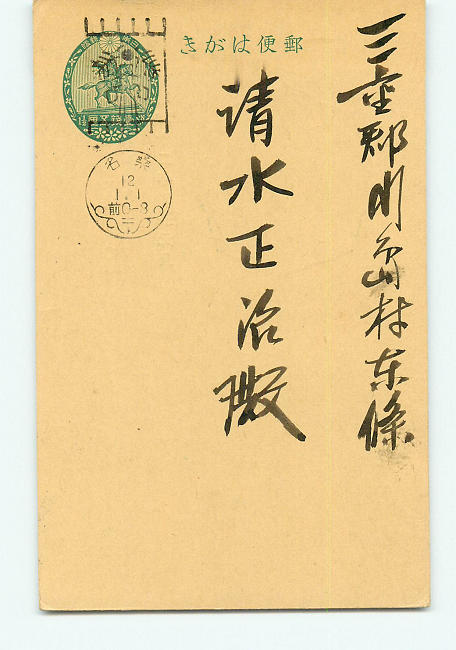 きがは便郵
三重郡川島村東條
請水正治殿
12
1.1
前0-8